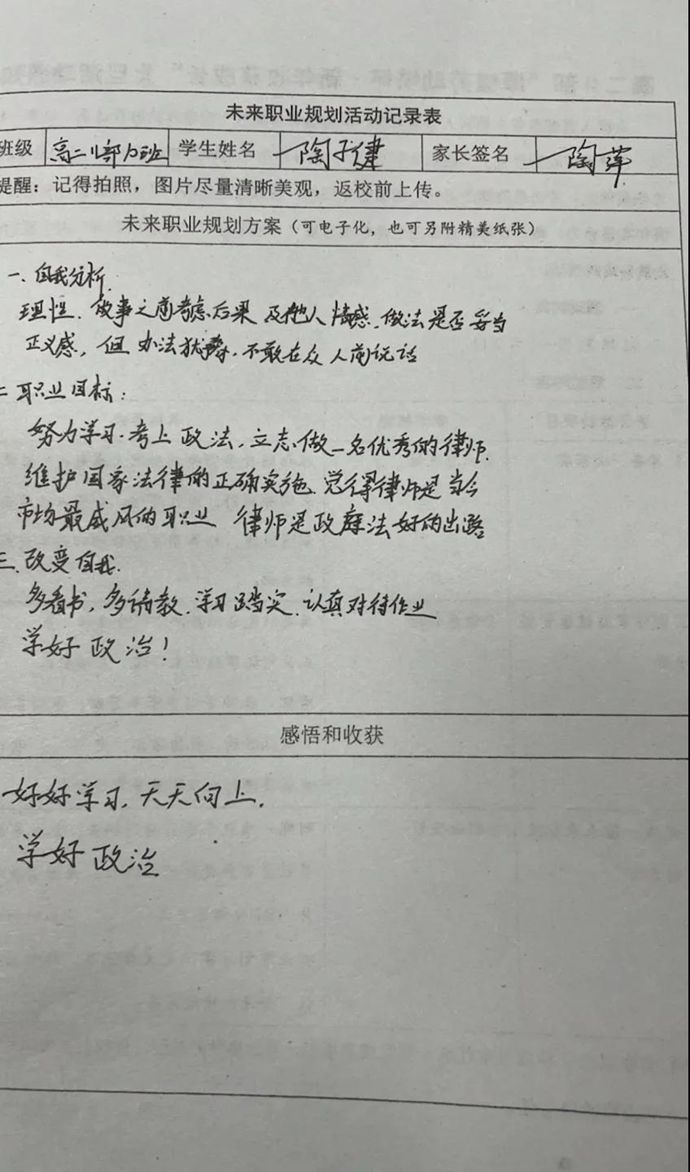 未来职业规划活动记录表
班级 高二11部 班 学生姓名 陶子健 家长签名 陶萍
提醒：记得拍照，图片尽量清晰美观，返校前上传。
未来职业规划方案（可电子化，也可另附精美纸张）
一、自我分析
理性、做事之前考虑后果及他人情感，做法是否妥当
正义感，但办法犹豫，不敢在众人前说话
二职业目标：
努力学习，考上政法，立志做一名优秀的律师，
维护国家法律的正确实施，觉得律师是
市场最威风的职业 律师是政 法好的出路
三、改变自我
多看书，多请教，学习踏实，认真对待作业
学好政治！
感悟和收获
好好学习，天天向上，
学好政治